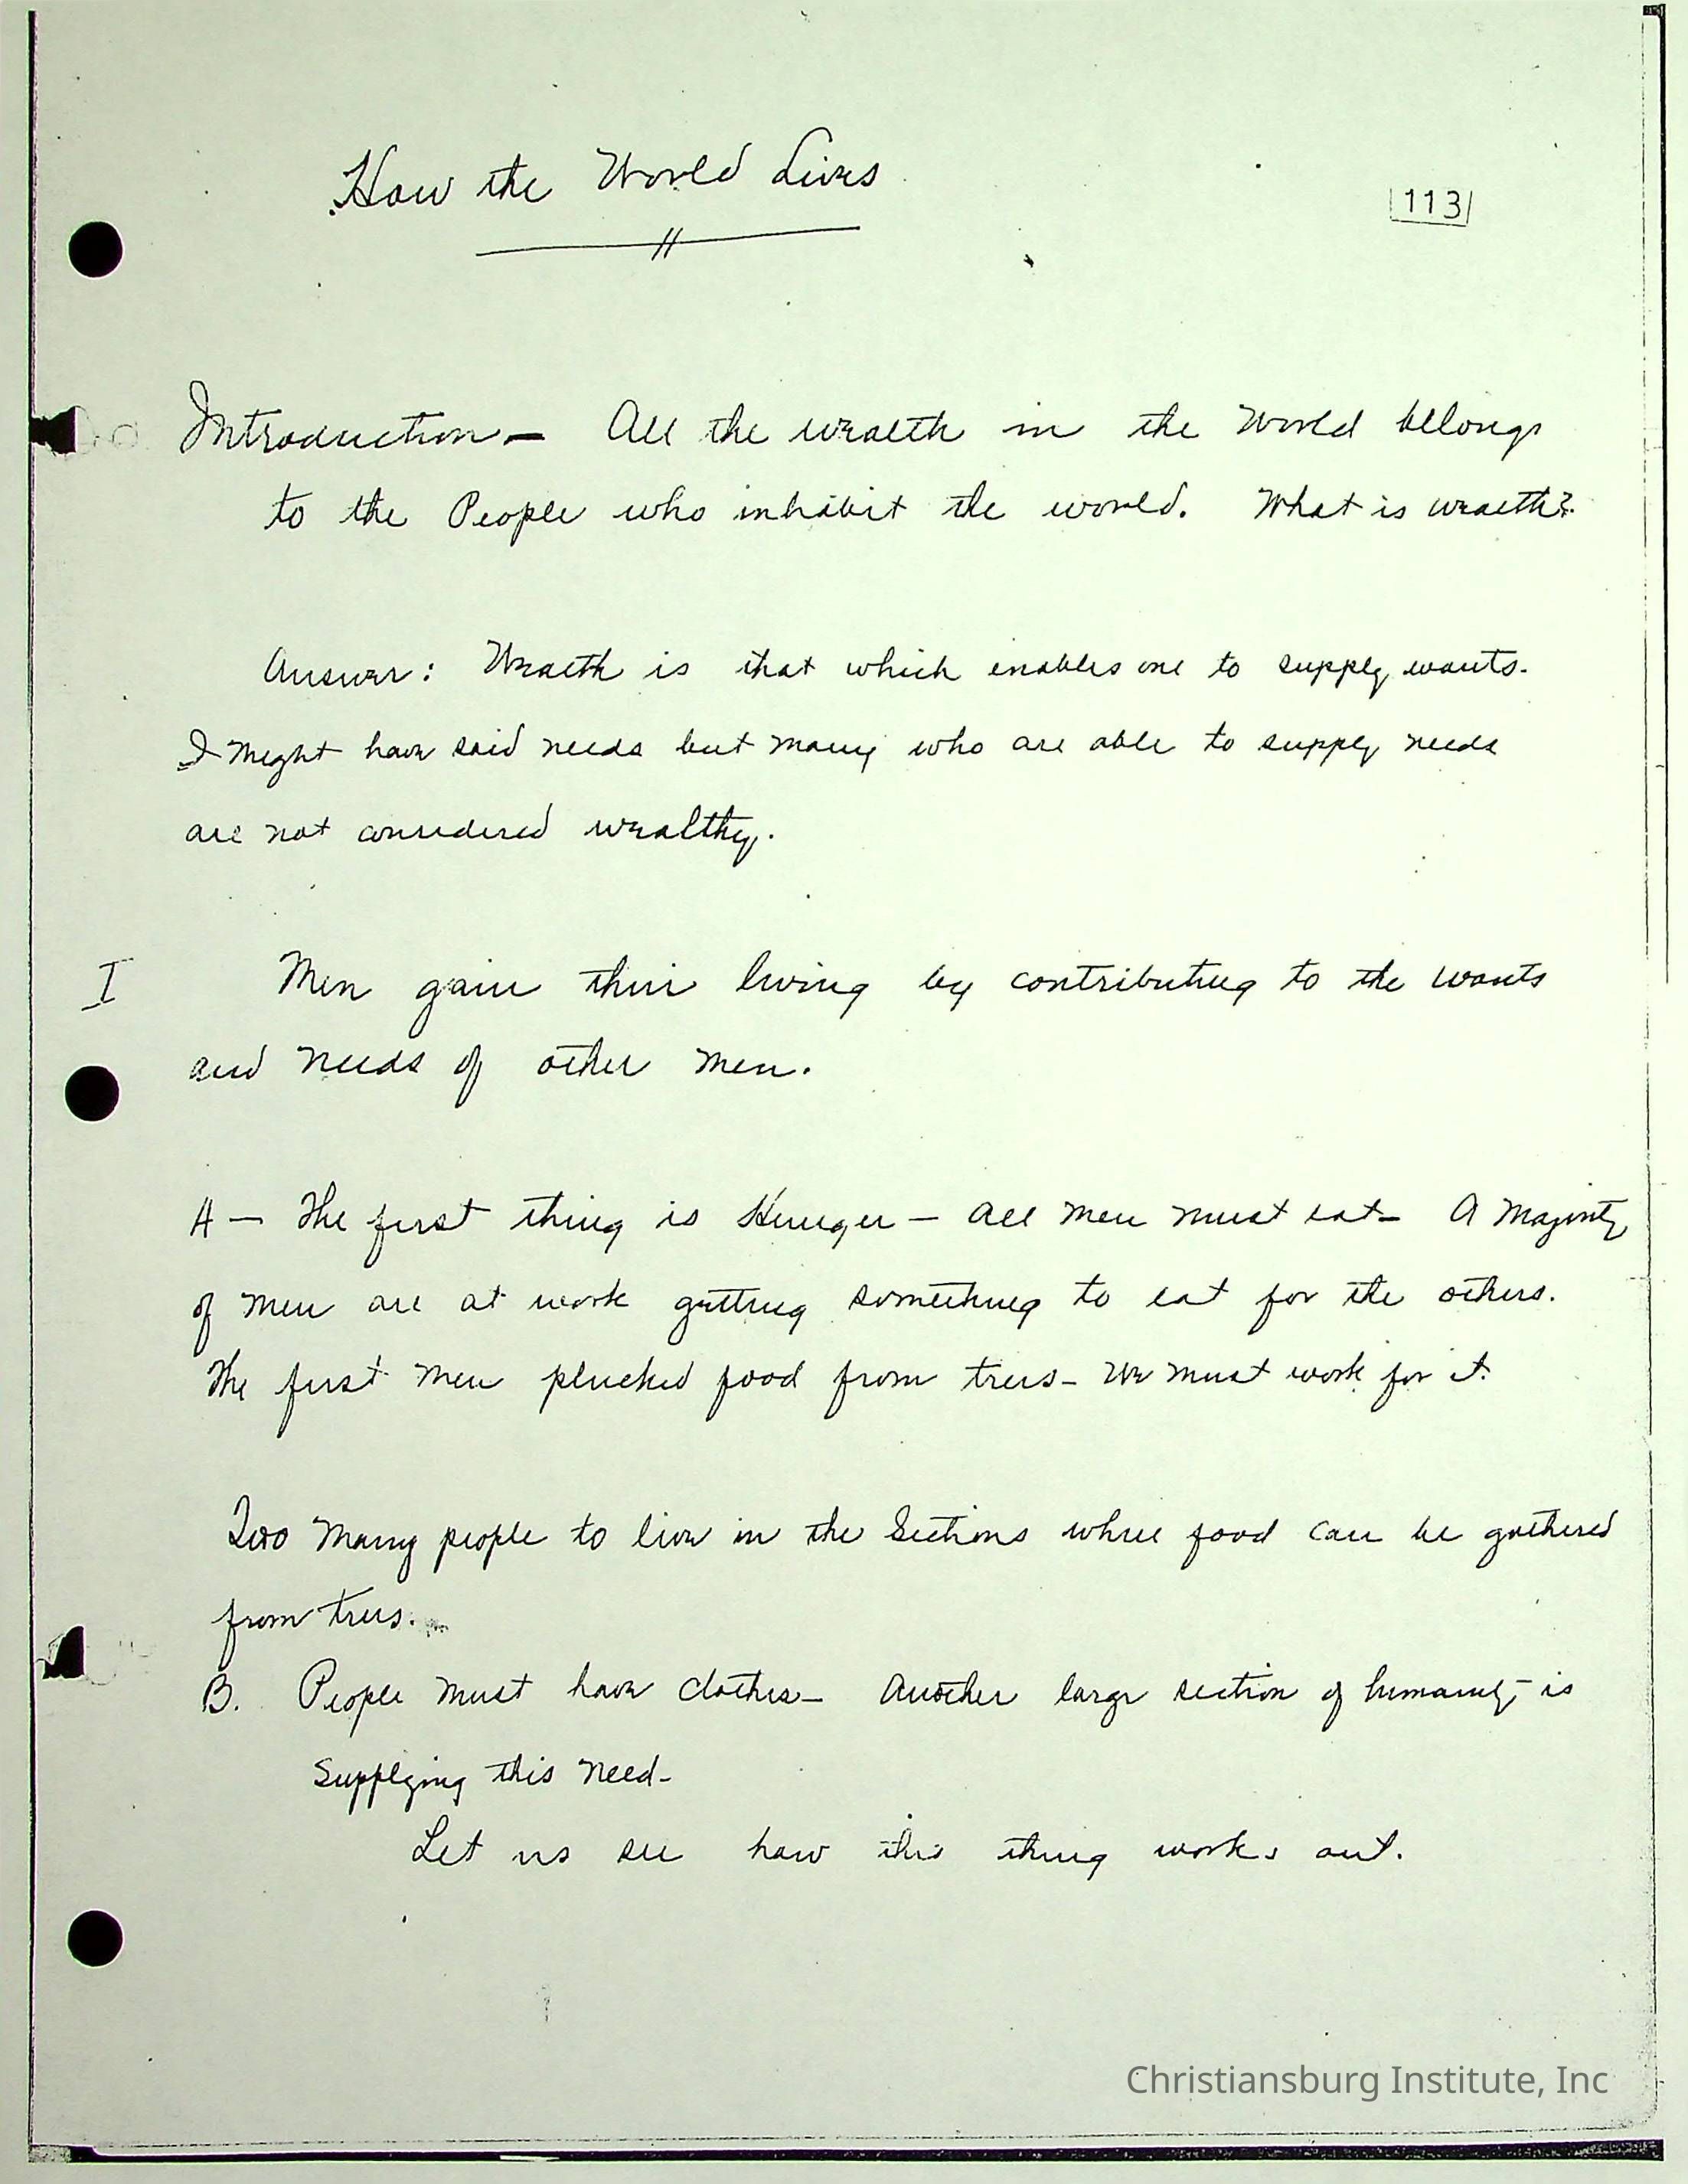 How the World Lives
113
Introduction — All the wealth in the World belongs
to the People who inhabit the world. What is wealth?
Answer: Wealth is that which enables one to supply wants.
I might have said needs but many who are able to supply needs
are not considered wealthy.
I Men gain their living by contributing to the wants
and needs of other men.
A — The first thing is Hunger — All men must eat — A Majority
of men are at work getting something to eat for the others.
The first men plucked food from trees — We must work for it.
Too many people to live in the Sections where food can be gathered
from trees.
B. People must have clothes — Another large section of humanity is
Supplying this need —
Let us see how this thing works out.
Christiansburg Institute, Inc